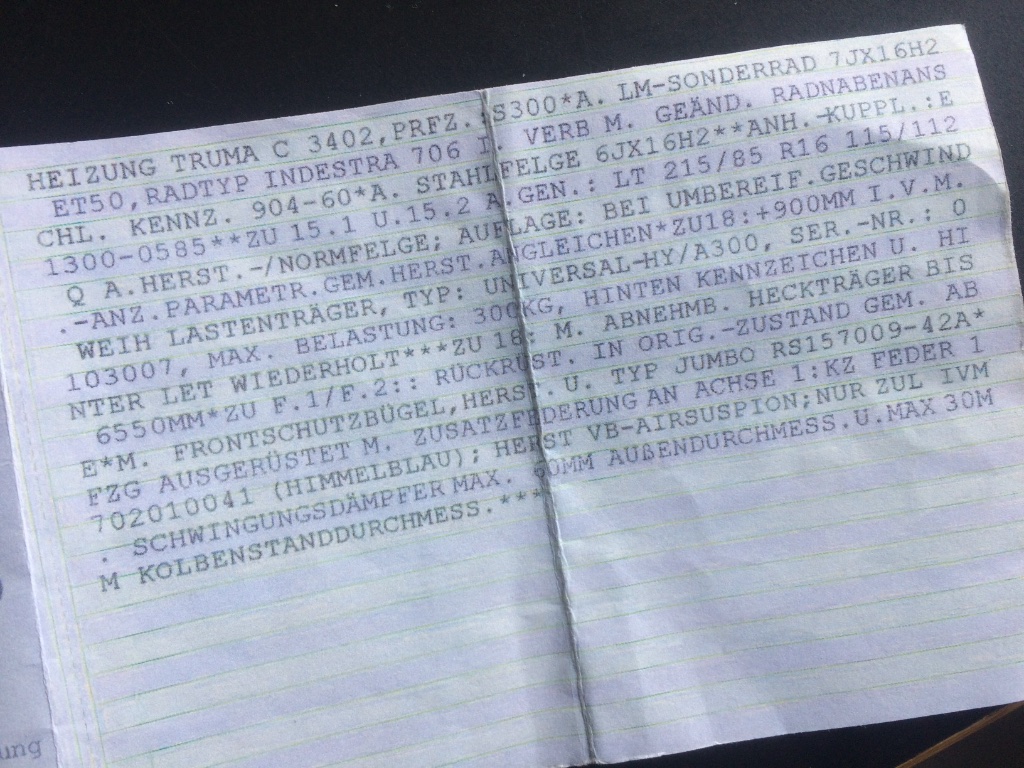 HEIZUNG TRUMA C 3402,PRFZ.:S300*A. LM-SONDERRAD 7JX16H2
ET50,RADTYP INDESTRA 706 I. VERB M. GEÄND. RADNABENANS
CHL. KENNZ. 904-60*A. STAHLFELGE 6JX16H2**ANH.-KUPPL.:E
1300-0585**ZU 15.1 U.15.2 A.GEN.: LT 215/85 R16 115/112
Q A.HERST.-/NORMFELGE; AUFLAGE: BEI UMBEREIF.GESCHWIND
.-ANZ.PARAMETR.GEM.HERST.ANGLEICHEN*ZU18:+900MM I.V.M.
WEIH LASTENTRÄGER, TYP: UNIVERSAL-HY/A300, SER.-NR.: 0
103007, MAX. BELASTUNG: 300KG, HINTEN KENNZEICHEN U. HI
NTER LET WIEDERHOLT***ZU 18: M. ABNEHMB. HECKTRÄGER BIS
6550MM*ZU F.1/F.2:: RÜCKRÜST. IN ORIG.-ZUSTAND GEM. AB
E*M. FRONTSCHUTZBÜGEL,HERST. U. TYP JUMBO RS157009-42A*
FZG AUSGERÜSTET M. ZUSATZFEDERUNG AN ACHSE 1:KZ FEDER 1
702010041 (HIMMELBLAU); HERST VB-AIRSUSPION;NUR ZUL IVM
. SCHWINGUNGSDÄMPFER MAX. 60MM AUßENDURCHMESS.U.MAX 30M
M KOLBENSTANDDURCHMESS.***
ung